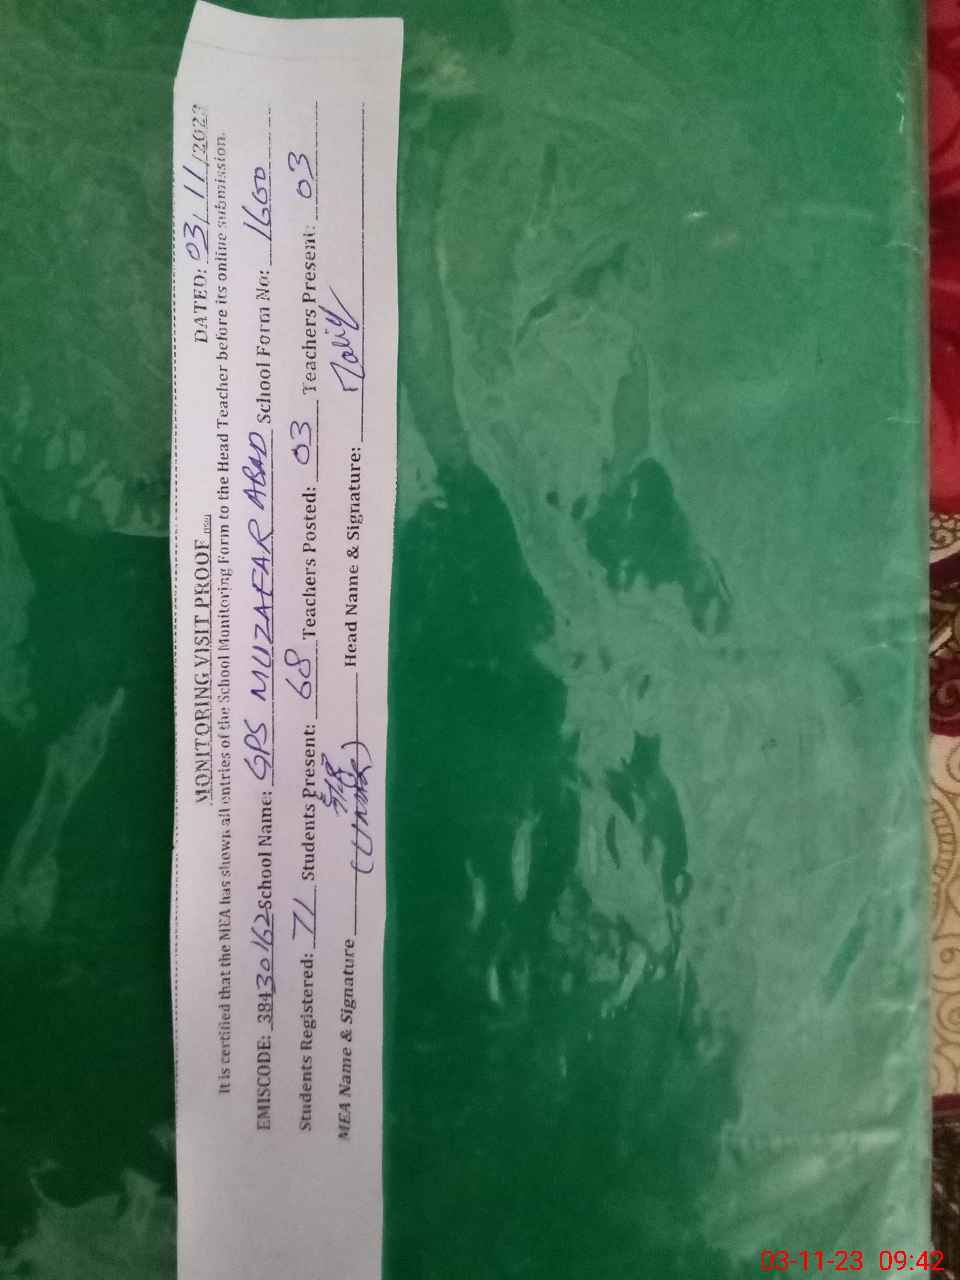 MONITORING VISIT PROOF
DATED: 03/11/2023
It is certified that the MEA has shown all entries of the School Monitoring Form to the Head Teacher before its online submission.
EMISCODE: 38430162 School Name: GPS MUZAFAR ABAD School Form No: 1660
Students Registered: 71 Students Present: 68 Teachers Posted: 03 Teachers Present: 03
MEA Name & Signature (UMAR) Head Name & Signature:
03-11-23 09:42